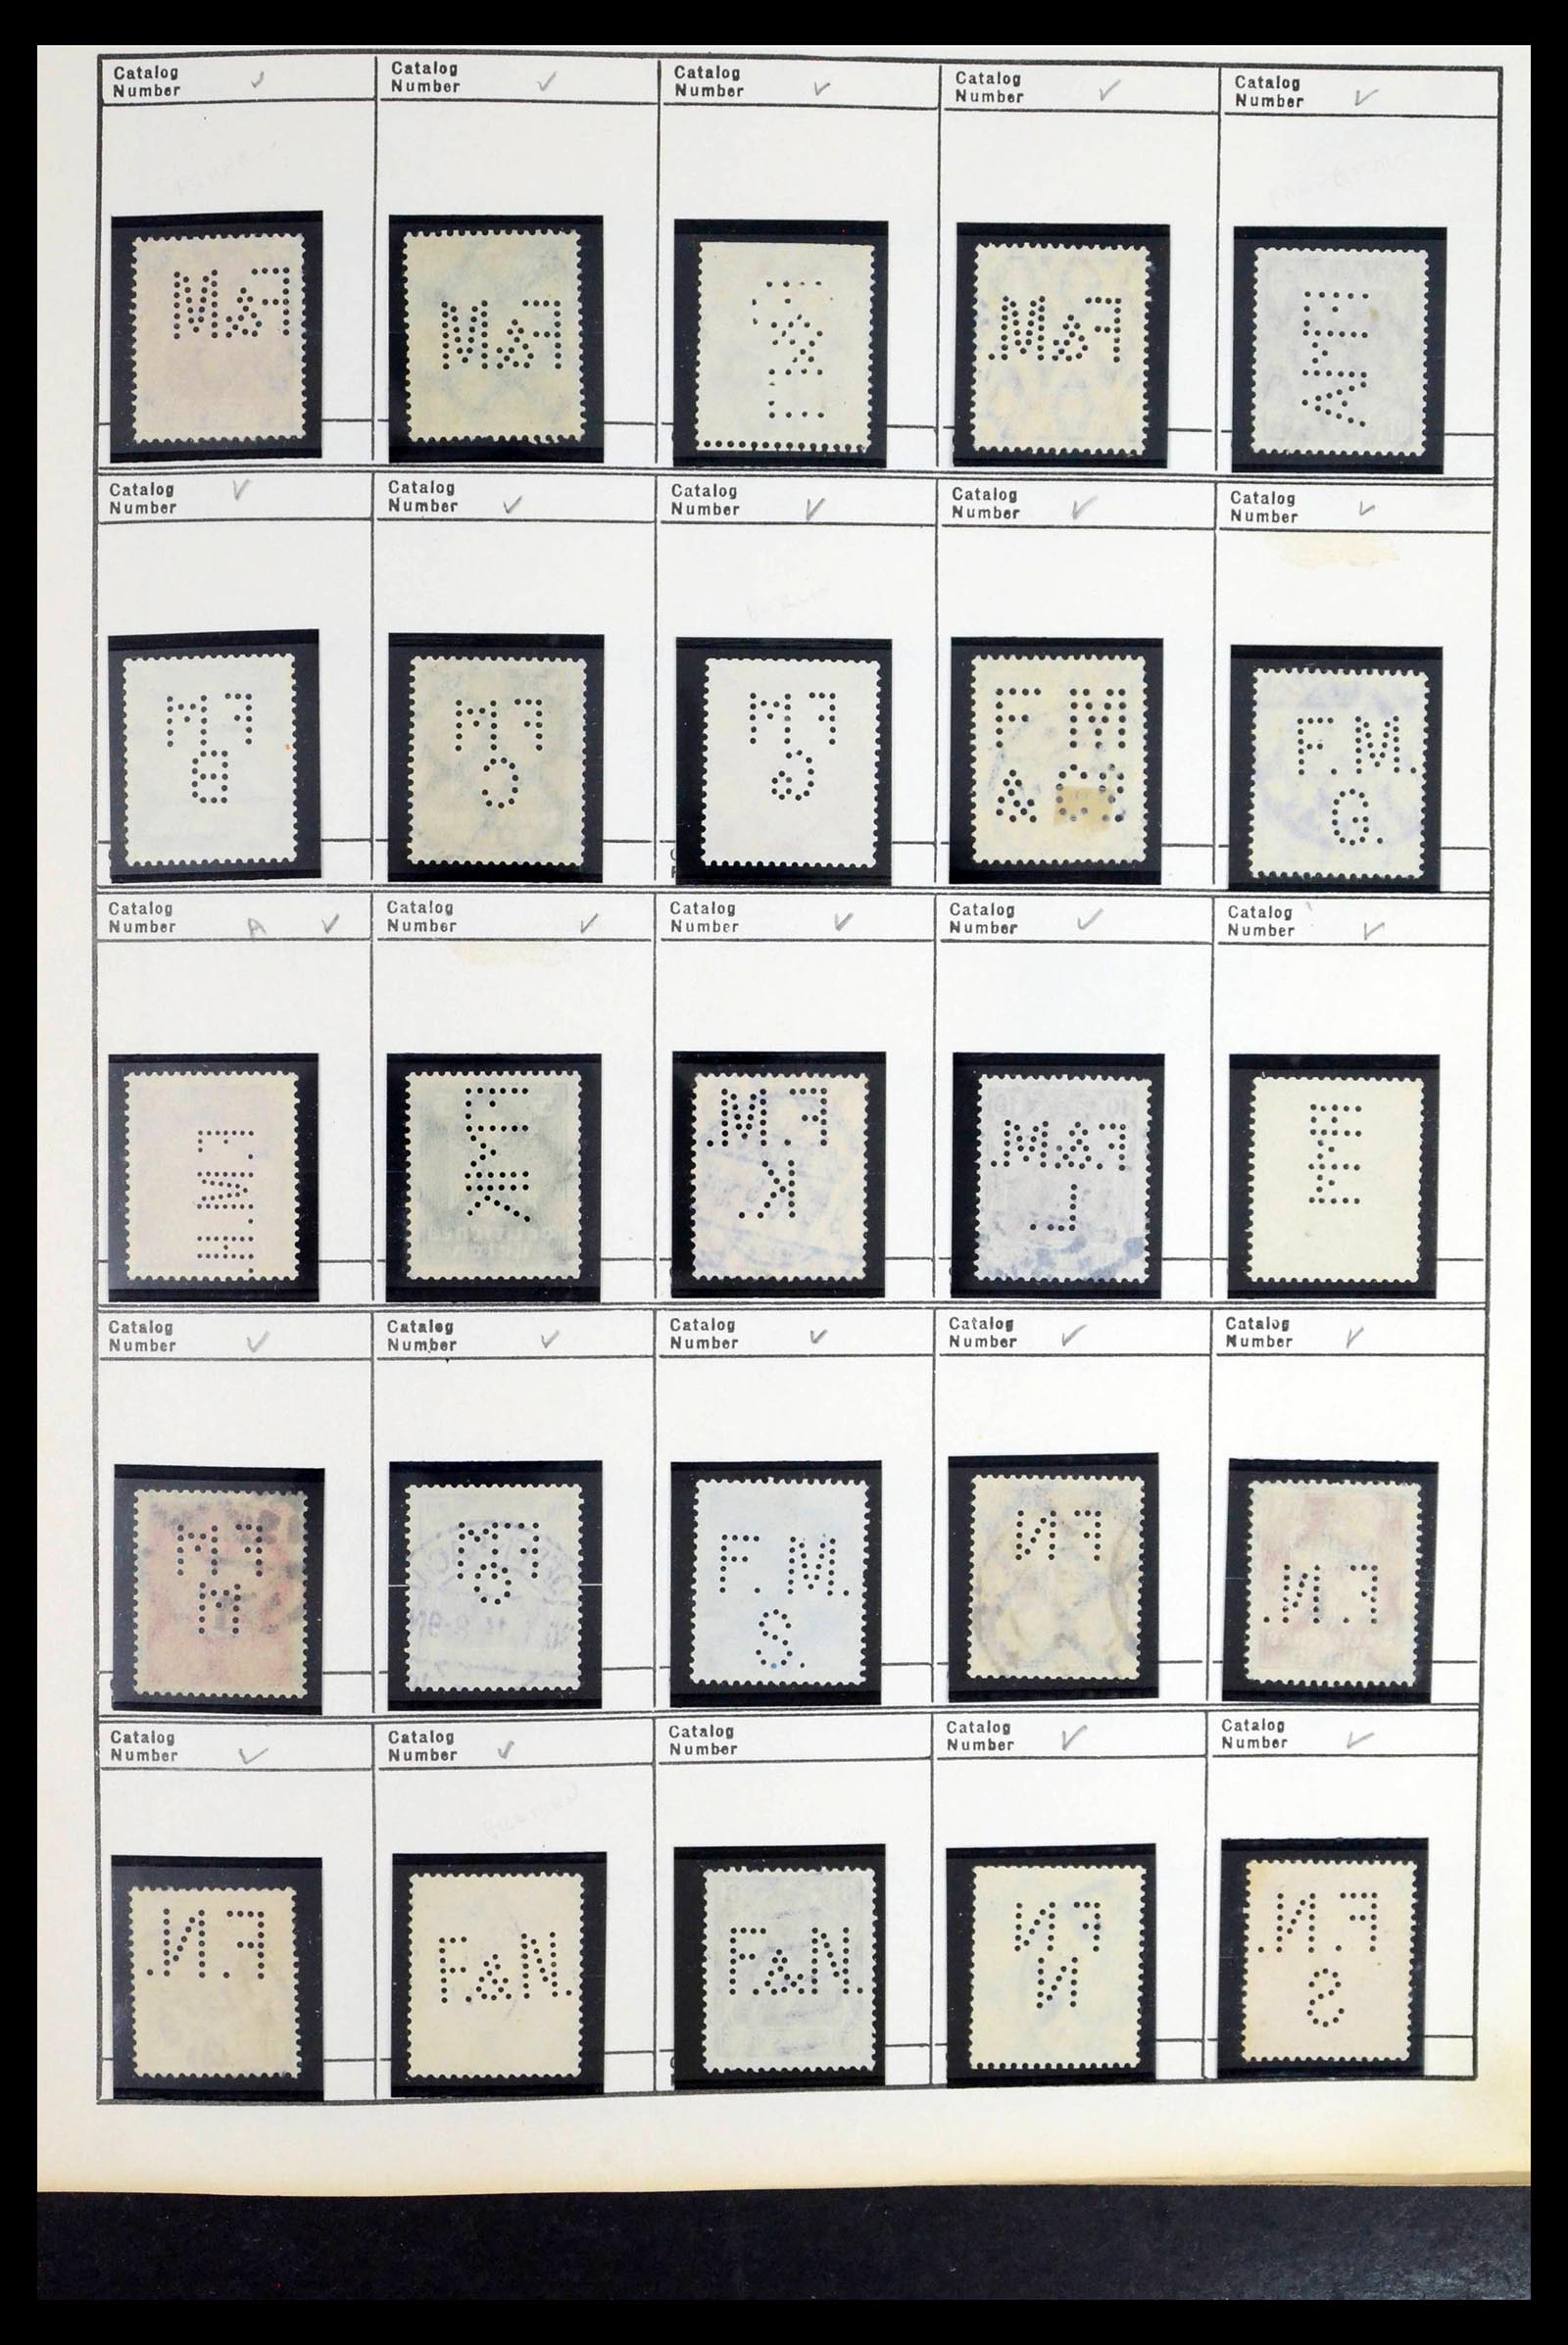 Catalog Number ✓
Catalog Number ✓
Catalog Number ✓
Catalog Number ✓
Catalog Number ✓
F&M
F&M
F&M.
Catalog Number ✓
Catalog Number ✓
Catalog Number ✓
Catalog Number ✓
Catalog Number ✓
FM
B
FM
C
FM
G
F M
& Cº
F.M.
G.
Catalog Number A ✓
Catalog Number ✓
Catalog Number ✓
Catalog Number ✓
Catalog Number ✓
F.M.
K.
F.&M.
L.
Catalog Number ✓
Catalog Number ✓
Catalog Number ✓
Catalog Number ✓
Catalog Number ✓
FM
M
FM
F.M.
S.
FN
F.N.
Catalog Number ✓
Catalog Number ✓
Catalog Number
Catalog Number ✓
Catalog Number ✓
F.N.
F.&N.
F.&N.
FN
N
F.N.
S